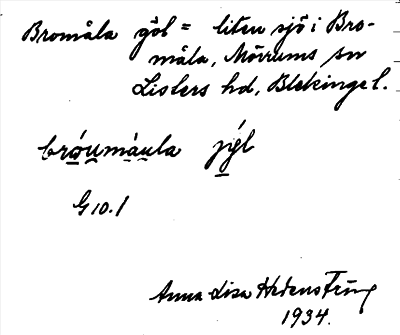 Bromåla göl = liten sjö i Bro-
måla, Mörrums sn
Listers hd, Blekinge l.
bróumåula jǿl
G 10.1
Anna-Lisa Hedenström
1934.